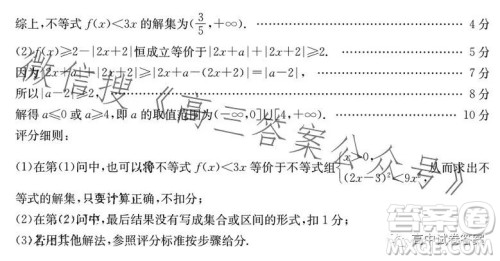 综上,不等式 f(x)<3x 的解集为(3/5,+∞). 4分
(2) f(x)≥2-|2x+2|恒成立等价于|2x+a|+|2x+2|≥2. 5分
因为|2x+a|+|2x+2|≥|2x+a-(2x+2)|=|a-2|, 7分
所以|a-2|≥2, 8分
解得 a≤0 或 a≥4,即 a 的取值范围为(-∞,0]∪[4,+∞). 10分
评分细则:
(1)在第(1)问中,也可以将不等式 f(x)<3x 等价于不等式组{x>0, (2x-3)²<9x², 从而求出不
等式的解集,只要计算正确,不扣分;
(2)在第(2)问中,最后结果没有写成集合或区间的形式,扣 1 分;
(3)若用其他解法,参照评分标准按步骤给分.
微信搜《高三答案公众号》
高中试卷答案